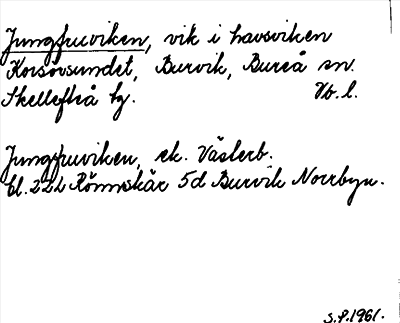 Jungfruviken, vik i havsviken
Korsövsundet, Burvik, Bureå sn.
Skellefteå tg. Vb. l.
Jungfruviken, ek. Västerb.
bl. 22L Rönnskär 5d Burvik Norrbyn.
S.P. 1961.